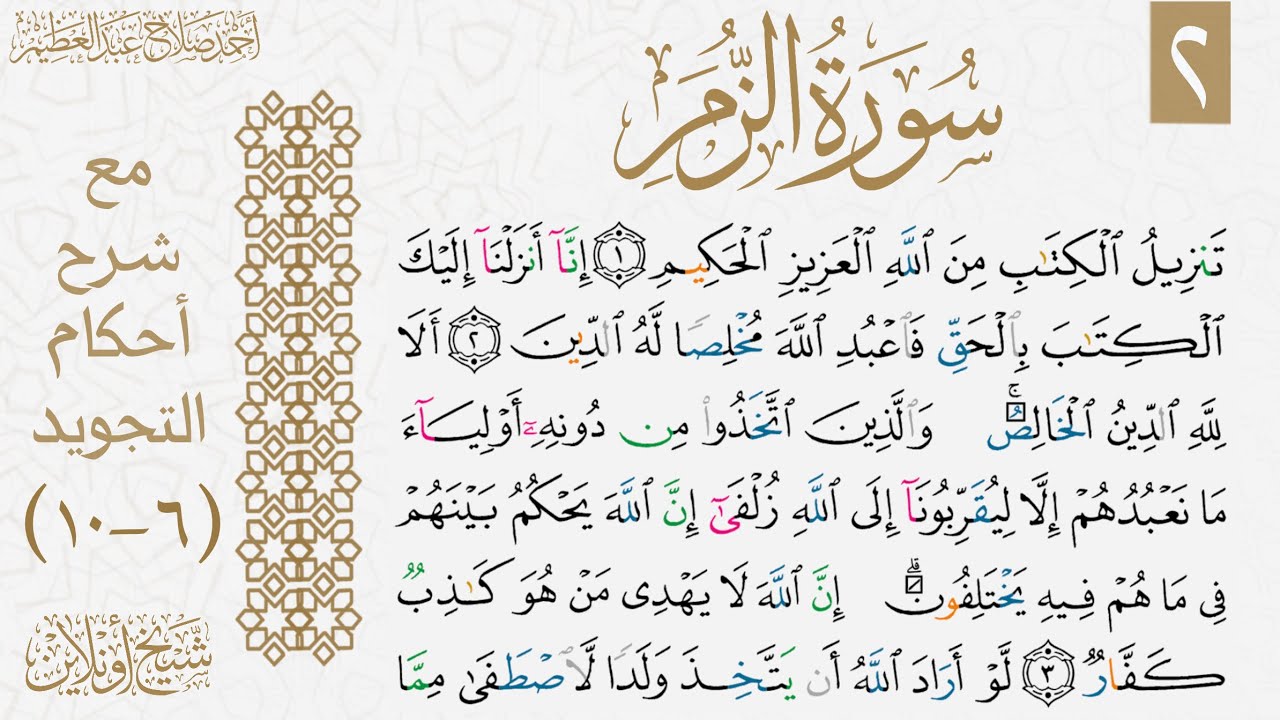 أحمد صلاح عبد العظيم
٢
سُورَةُ الزُّمَرِ
تَنزِيلُ ٱلْكِتَٰبِ مِنَ ٱللَّهِ ٱلْعَزِيزِ ٱلْحَكِيمِ ١ إِنَّآ أَنزَلْنَآ إِلَيْكَ
ٱلْكِتَٰبَ بِٱلْحَقِّ فَٱعْبُدِ ٱللَّهَ مُخْلِصًا لَّهُ ٱلدِّينَ ٢ أَلَا
لِلَّهِ ٱلدِّينُ ٱلْخَالِصُ ۚ وَٱلَّذِينَ ٱتَّخَذُوا۟ مِن دُونِهِۦٓ أَوْلِيَآءَ
مَا نَعْبُدُهُمْ إِلَّا لِيُقَرِّبُونَآ إِلَى ٱللَّهِ زُلْفَىٰٓ إِنَّ ٱللَّهَ يَحْكُمُ بَيْنَهُمْ
فِى مَا هُمْ فِيهِ يَخْتَلِفُونَ ۗ إِنَّ ٱللَّهَ لَا يَهْدِى مَنْ هُوَ كَٰذِبٌ
كَفَّارٌ ٣ لَّوْ أَرَادَ ٱللَّهُ أَن يَتَّخِذَ وَلَدًا لَّٱصْطَفَىٰ مِمَّا
مع
شرح
أحكام
التجويد
(٦-١٠)
شيخ أونلاين